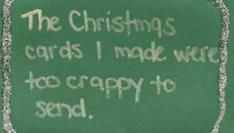 The Christmas
cards I made were
too crappy to
send.